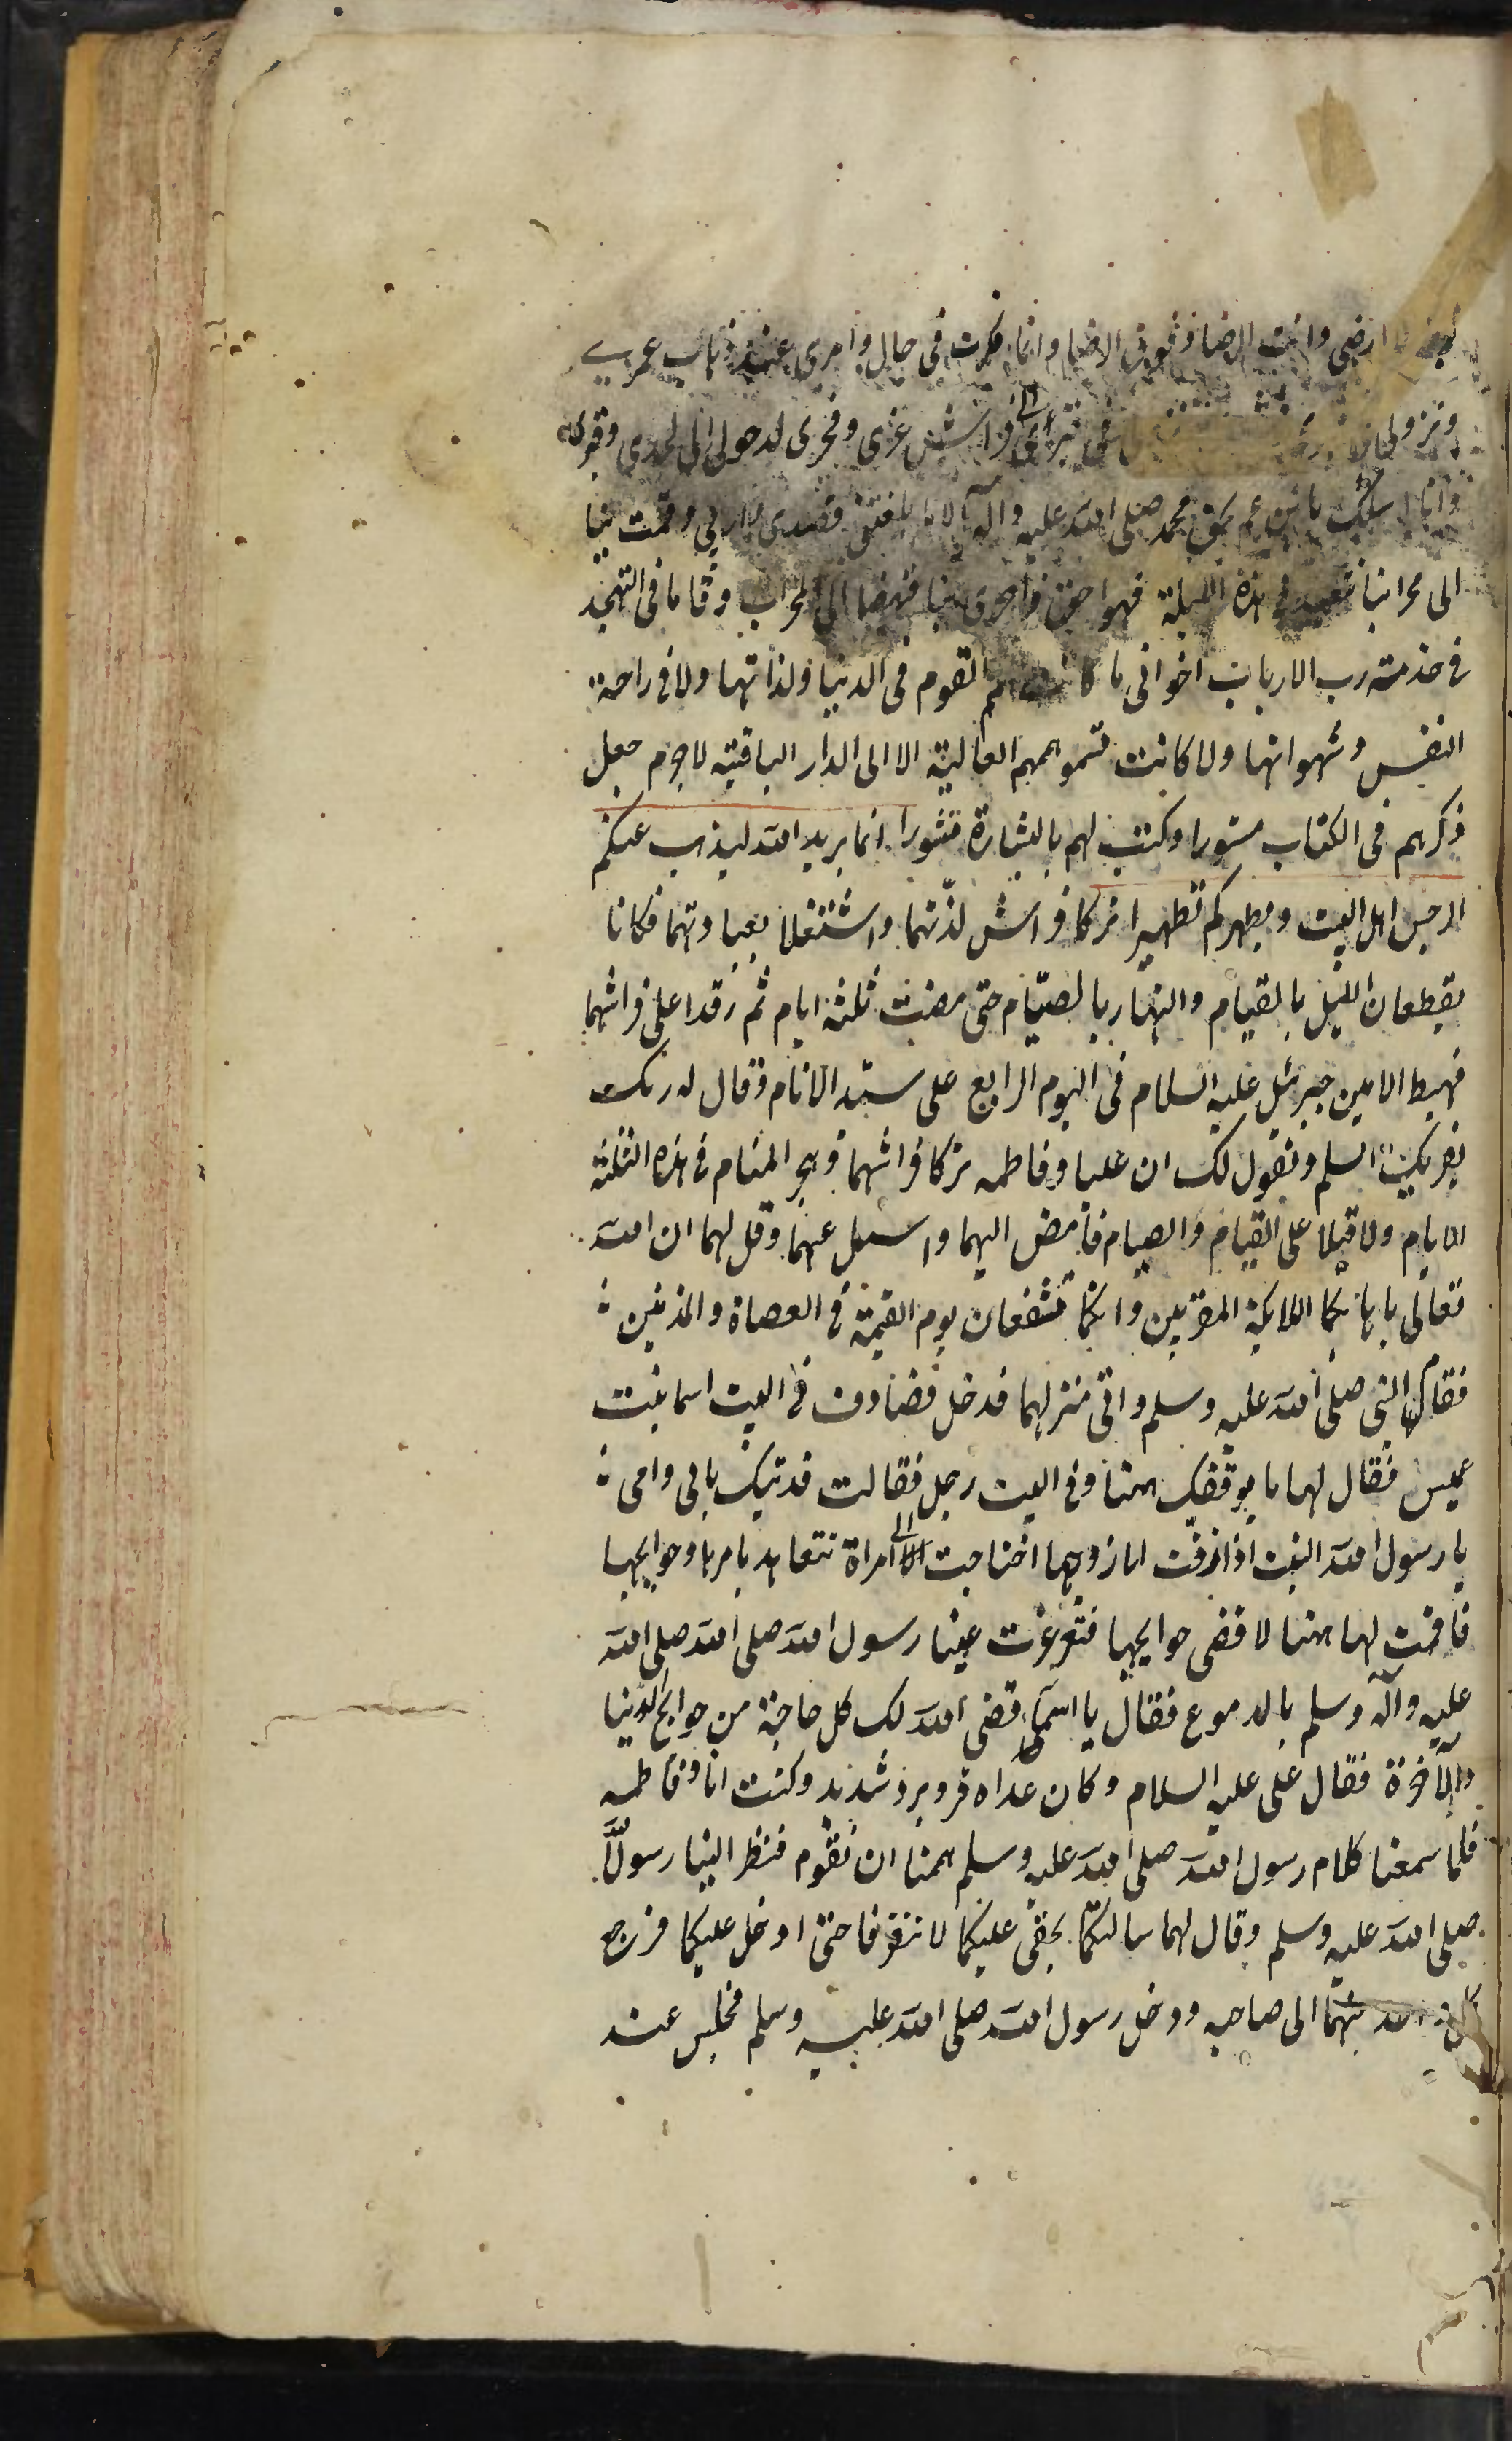 ارضى وانت الرضا وفوق الرضا وانما فكرت فى حالى وامرى عند ذهاب عمرى
ونزولى فى قبرى الى فراش عزى وفخرى لدخولى الى لحدى وقبرى
وانا اسئلك يا ابن عم بحق محمد صلى الله عليه وآله الا ما بلغتنى قصدى واربى وقمت بنا
الى محرابنا نتعبد فى هذه الليلة فهو احق واحرى بنا فنهضا الى المحراب وقاما فى التهجد
فى خدمة رب الارباب اخوانى ما كانت همم القوم فى الدنيا ولذاتها ولا فى راحة
النفس وشهواتها ولا كانت تسمو هممهم العالية الا الى الدار الباقية لا جرم جعل
ذكرهم فى الكتاب مسطورا وكتب لهم بالبشارة منشورا انما يريد الله ليذهب عنكم
الرجس اهل البيت ويطهركم تطهيرا تركا فراش لذّتهما واشتغلا بعبادتهما فكانا
يقطعان الليل بالقيام والنهار بالصيّام حتى مضت ثلثة ايام ثم رقدا على فراشهما
فهبط الامين جبرئيل عليه السلام فى اليوم الرابع على سيد الانام وقال له ربك
يقريك السلم ويقول لك ان عليا وفاطمه تركا فراشهما وهجر المنام فى هذه الثلثة
الايام ولاقبلا على القيام والصيام فامض اليهما واسئل عنهما وقل لهما ان الله
تعالى باها بكما الملايكة المقربين وانكما تشفعان يوم القيمة فى العصاة والمذنبين
فقام النبى صلى الله عليه وسلم واتى منزلهما فدخل فصادف فى البيت اسما بنت
عميس فقال لها ما يوقفك ههنا وفى البيت رجل فقالت فديتك بابى وامى
يا رسول الله البنت اذا زفت الى زوجها احتاجت الى امراة تتعاهد بامرها وحوايجها
فاقمت لها ههنا لاقضى حوايجها فتغرغرت عينا رسول الله صلى الله صلى الله
عليه وآله وسلم بالدموع فقال يا اسمآء قضى الله لك كل حاجة من حوايج الدنيا
والآخرة فقال على عليه السلام وكان غداه قر وبرد شديد وكنت انا وفاطمه
فلما سمعنا كلام رسول الله صلى الله عليه وسلم هممنا ان نقوم فنظر الينا رسول الله
صلى الله عليه وسلم وقال لهما سالتكما بحقى عليكما لا تفترقا حتى ادخل عليكما فرجع
كل واحد منهما الى صاحبه ودخل رسول الله صلى الله عليه وسلم فجلس عند